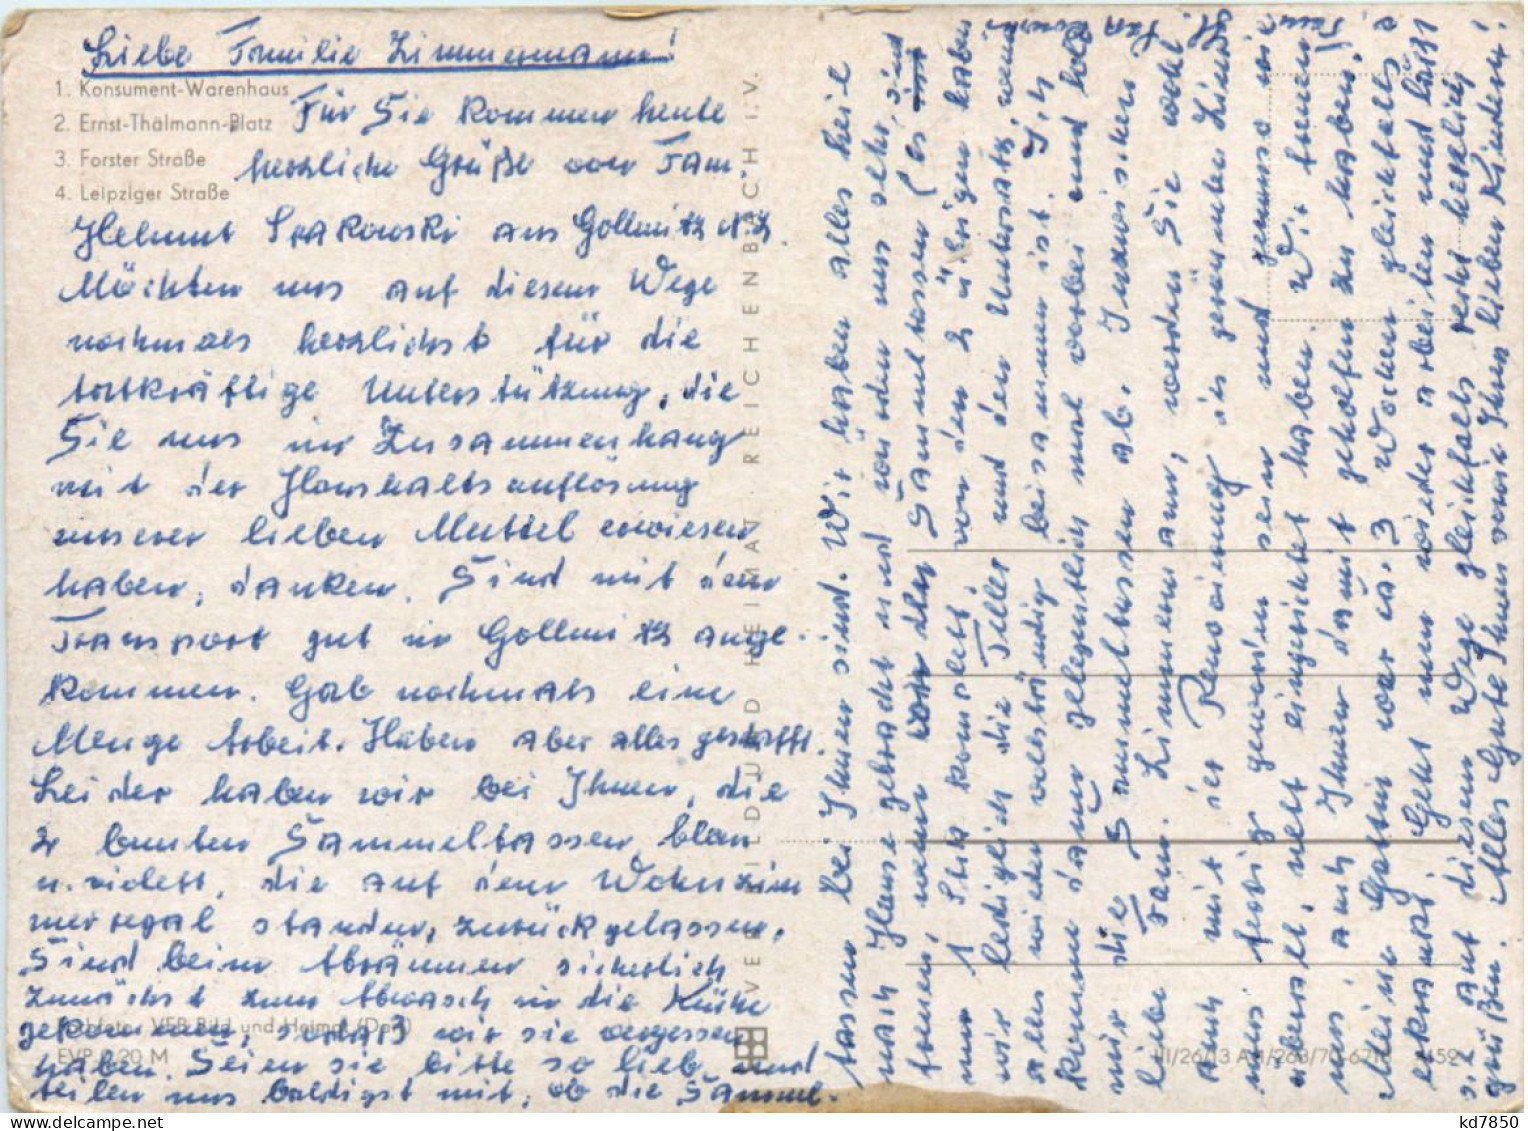 Liebe Familie Zimmermann!
1. Konsument-Warenhaus
2. Ernst-Thälmann-Platz
3. Forster Straße
4. Leipziger Straße
Für Sie kommen heute
herzliche Grüße von Fam.
Helmut Srakowski aus Gollmitz N.L.
Möchten uns auf diesem Wege
nochmals herzlichst für die
tatkräftige Unterstützung, die
Sie uns im Zusammenhang
mit der Haushaltsauflösung
unserer lieben Muttel erwiesen
haben, danken. Sind mit dem
Transport gut in Gollmitz ange-
kommen. Gab nochmals eine
Menge Arbeit. Haben aber alles geschafft.
Leider haben wir bei Ihnen, die
2 bunten Sammeltassen blau
u. violett, die auf dem Wohnzim
merregal standen, zurückgelassen.
Sind beim Abräumen sicherlich
zunächst zum Abwasch in die Küche
gekommen, sodaß wir sie vergessen
haben. Seien sie bitte so lieb und
teilen uns baldigst mit, ob die Samml.
VEB Bild und Heimat (Dos)
EVP 0,20 M
VEB BILD UND HEIMAT REICHENBACH I.V.
III/26/13 A 1/268/70 6718 4159
tassen bei Ihnen sind. Wir haben alles heil
nach Hause gebracht und würden uns sehr
freuen, wenn wir die Sammeltassen (es sind
nur 1 Stck komplett, von den 2 übrigen haben
wir lediglich die Teller und den Untersatz, wenn
alles wieder vollständig beisammen ist. Ich
komme dann gelegentlich mal vorbei und hole
mir die Sammeltassen ab. Inzwischen
liebe Fam. Zimmermann, werden Sie wohl
auch mit der Renovierung der geräumten Zimmer
fertig geworden sein und genauso wie
uns überall, nett eingerichtet haben. Wir freuen
uns auch Ihnen damit geholfen zu haben!
Meine Gattin war ca. 3 Wochen gleichfalls
erkrankt. Geht nun wieder arbeiten und läßt
sie auf diesem Wege gleichfalls recht herzlich
grüßen. Alles Gute Ihnen sowie Ihren lieben Kindern!